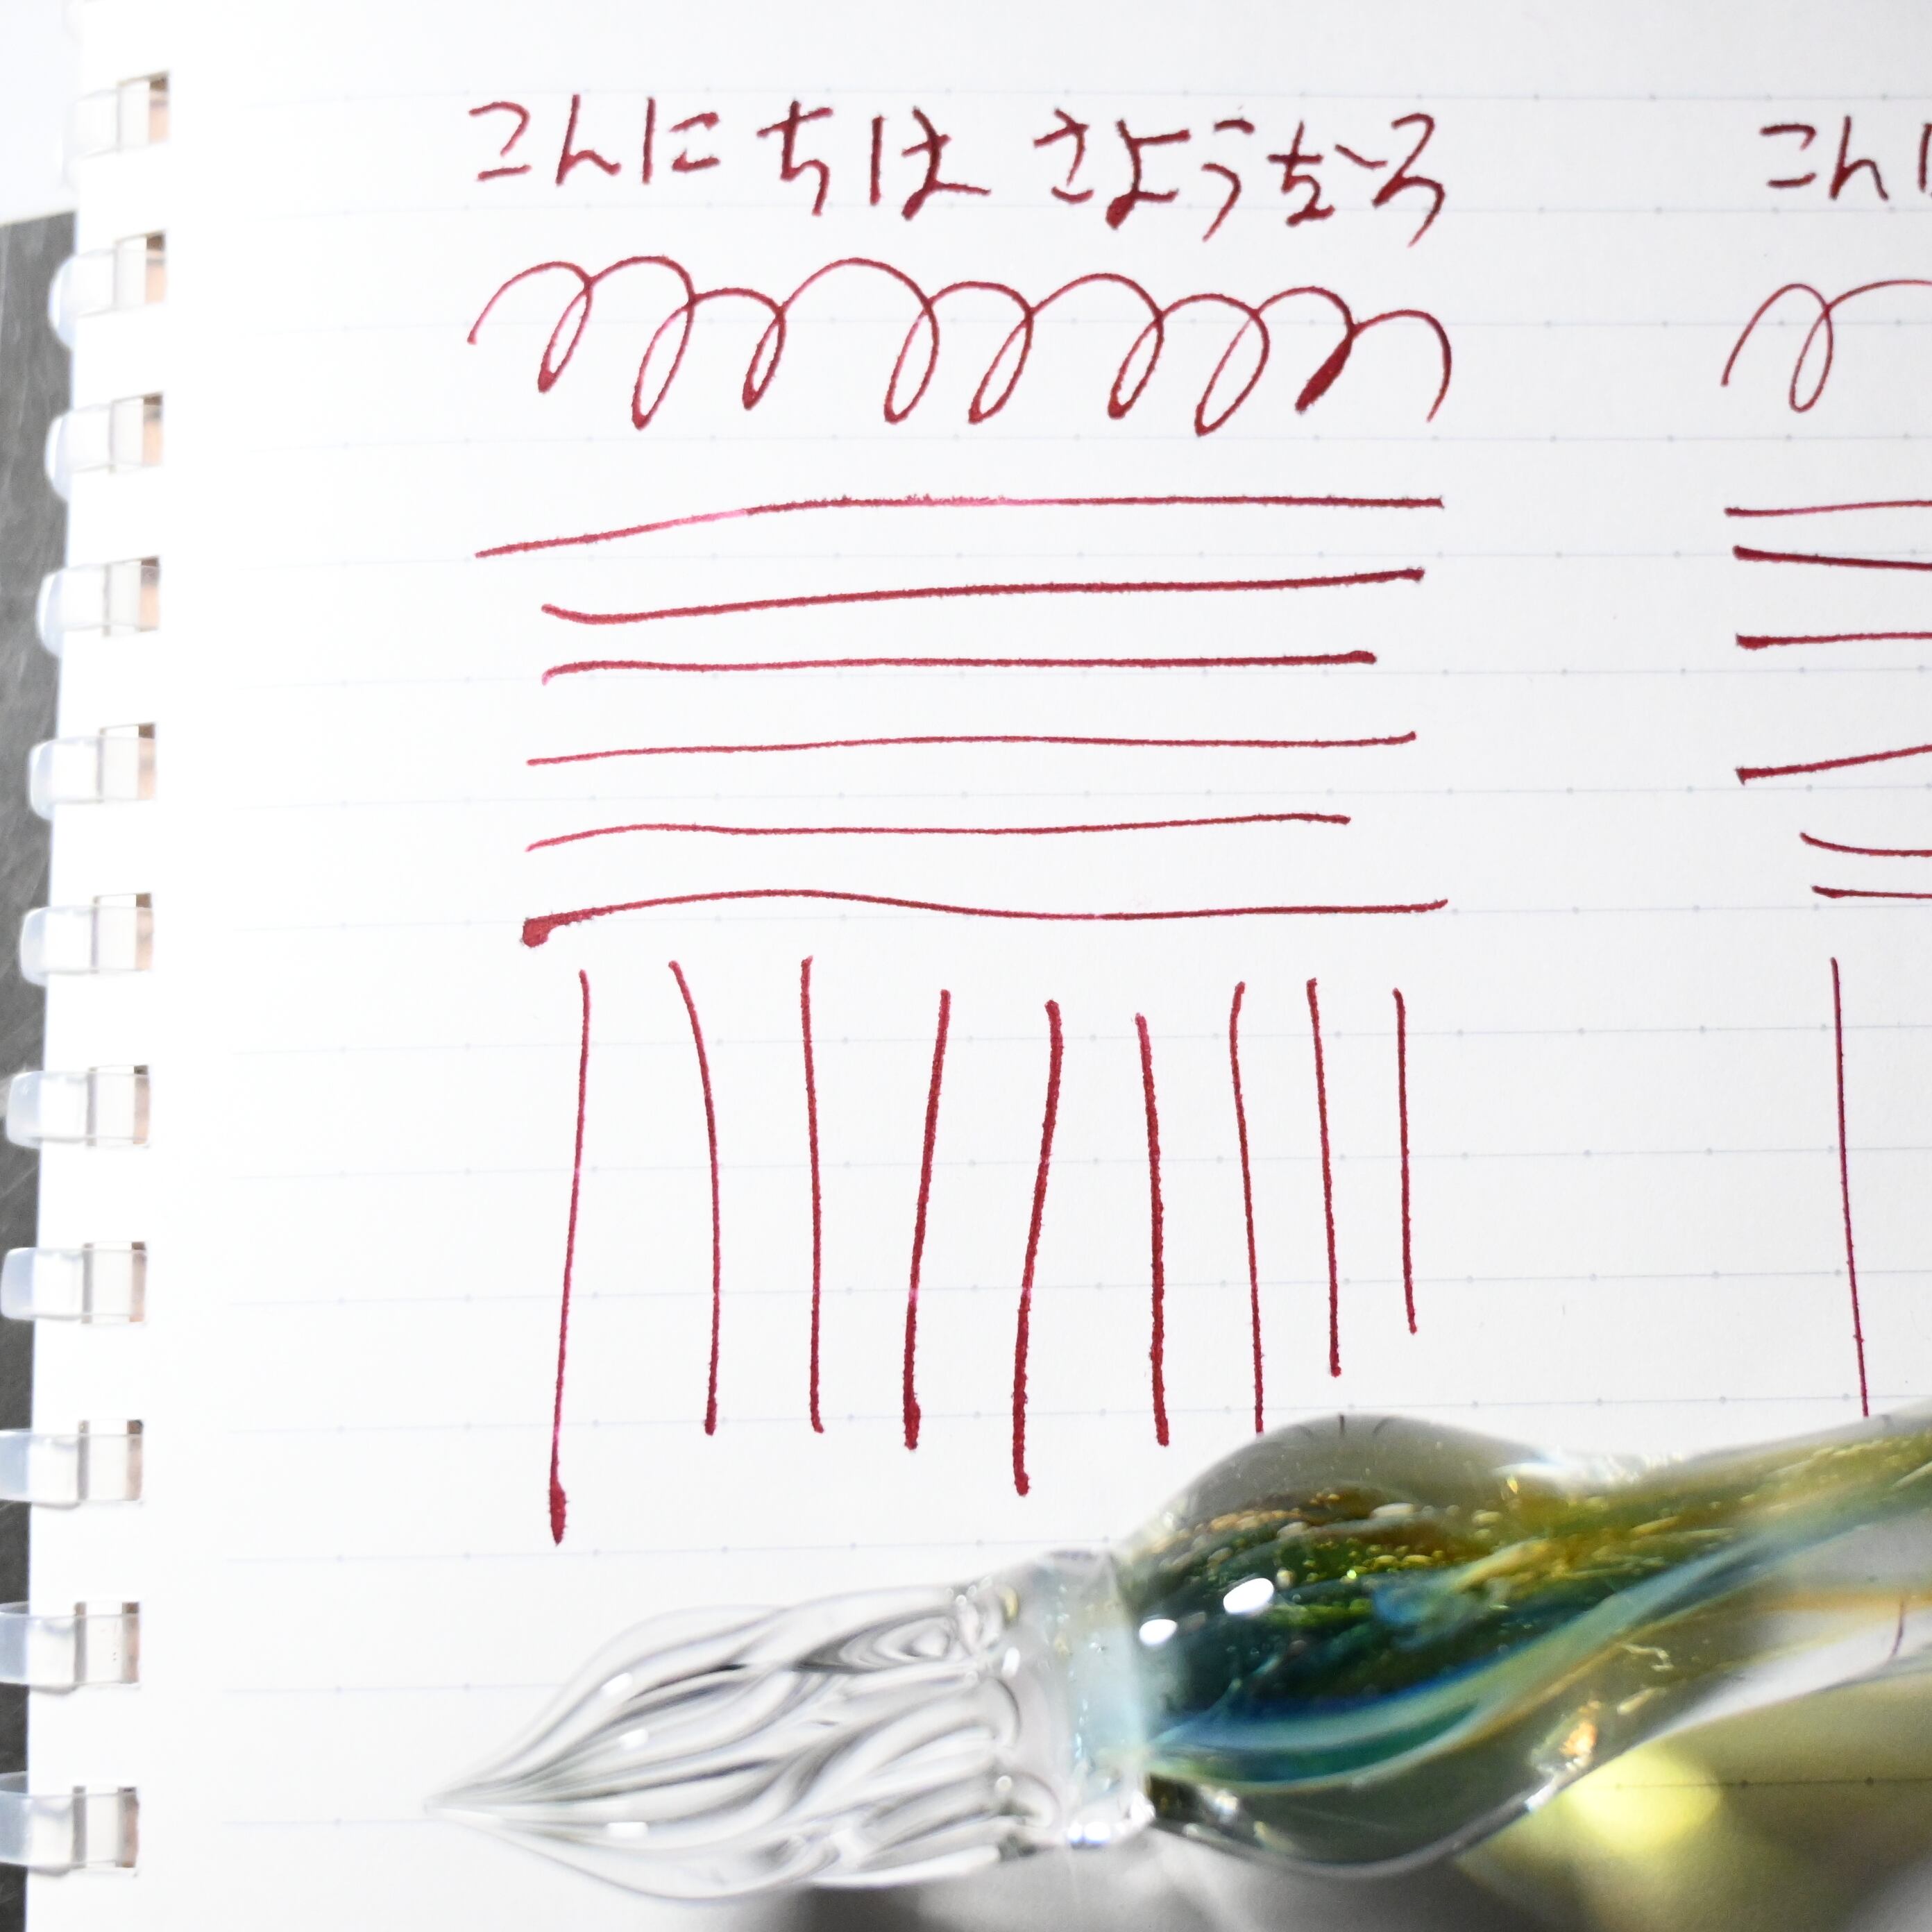 こんにちは さようなら こんに